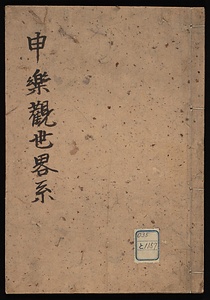 申樂觀世畧系